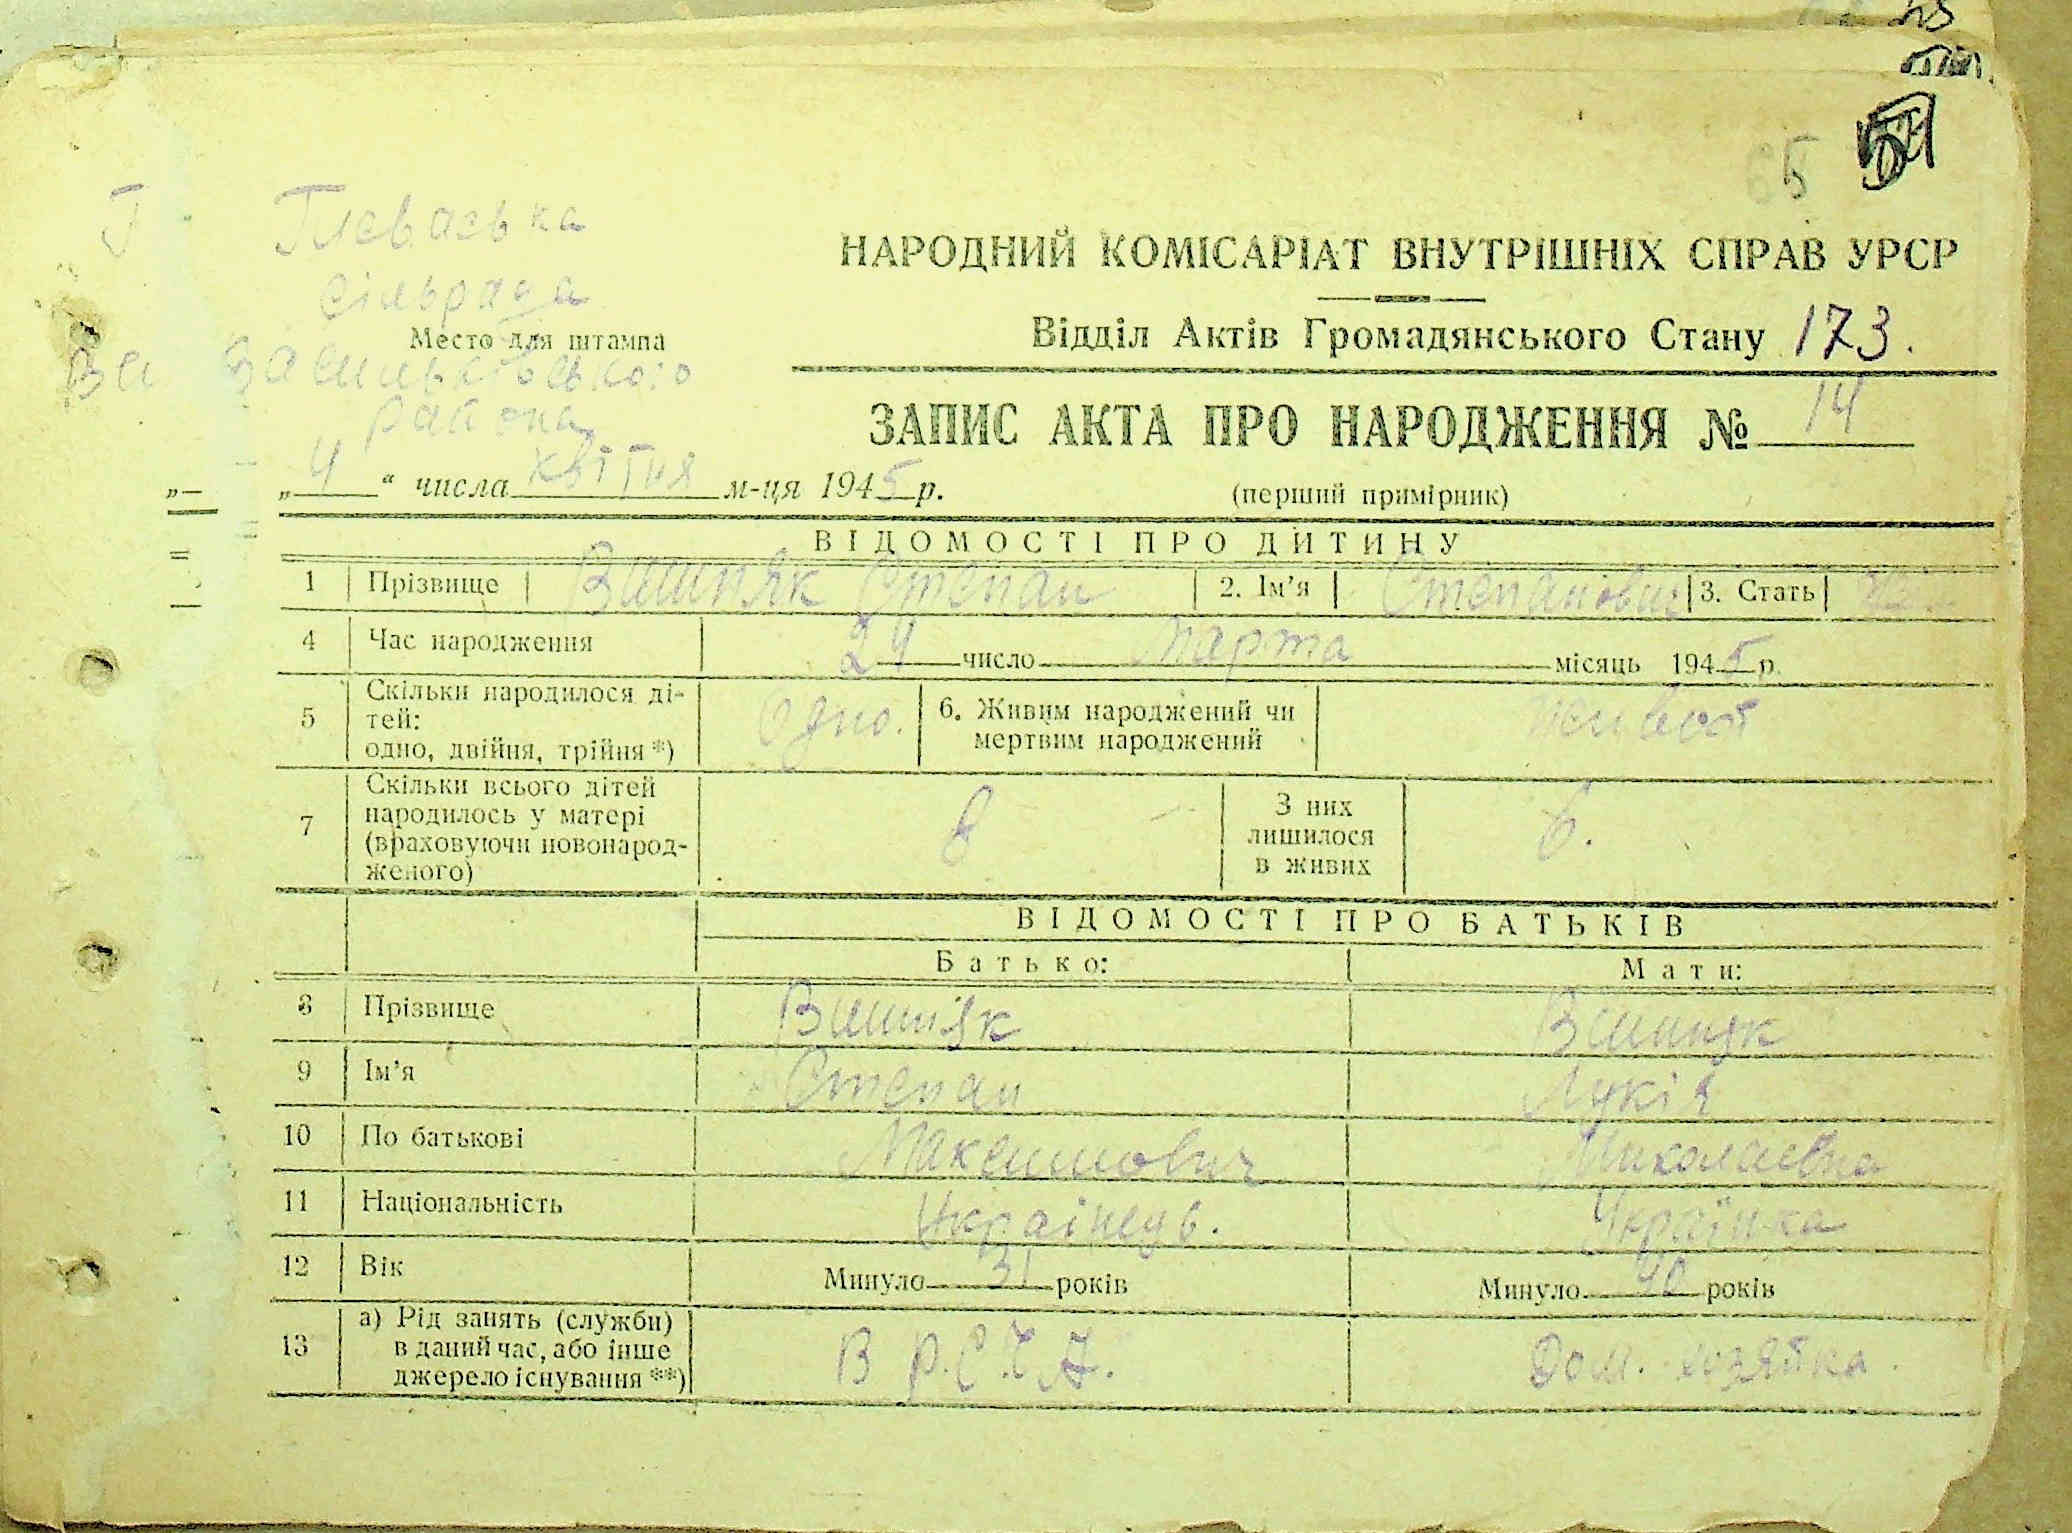 65
Глеваська
сільрада
Место для штампа
Васильківського
района
НАРОДНИЙ КОМІСАРІАТ ВНУТРІШНІХ СПРАВ УРСР
Відділ Актів Громадянського Стану 173.
ЗАПИС АКТА ПРО НАРОДЖЕННЯ № 14
„4“ числа квітня м-ця 1945 р.
(перший примірник)
ВІДОМОСТІ ПРО ДИТИНУ
1 Прізвище Вишняк Степан 2. Ім’я Степанович 3. Стать
4 Час народження 24 число марта місяць 1945 р.
5 Скільки народилося ді-
тей:
одно, двійня, трійня*) Одно. 6. Живим народжений чи
мертвим народжений живой
7 Скільки всього дітей
народилось у матері
(враховуючи новонарод-
женого) 8 З них
лишилося
в живих 6.
ВІДОМОСТІ ПРО БАТЬКІВ
Батько: Мати:
8 Прізвище Вишняк Вишняк
9 Ім’я Степан Лукія
10 По батькові Максимович Миколаевна
11 Національність Украінець. Українка
12 Вік Минуло 31 років Минуло 40 років
13 а) Рід занять (служби)
в даний час, або інше
джерело існування**) В Р.С.Ч.А. Дом. хозяйка.